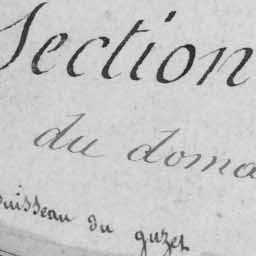 Section
du doma
ruisseau du guzet